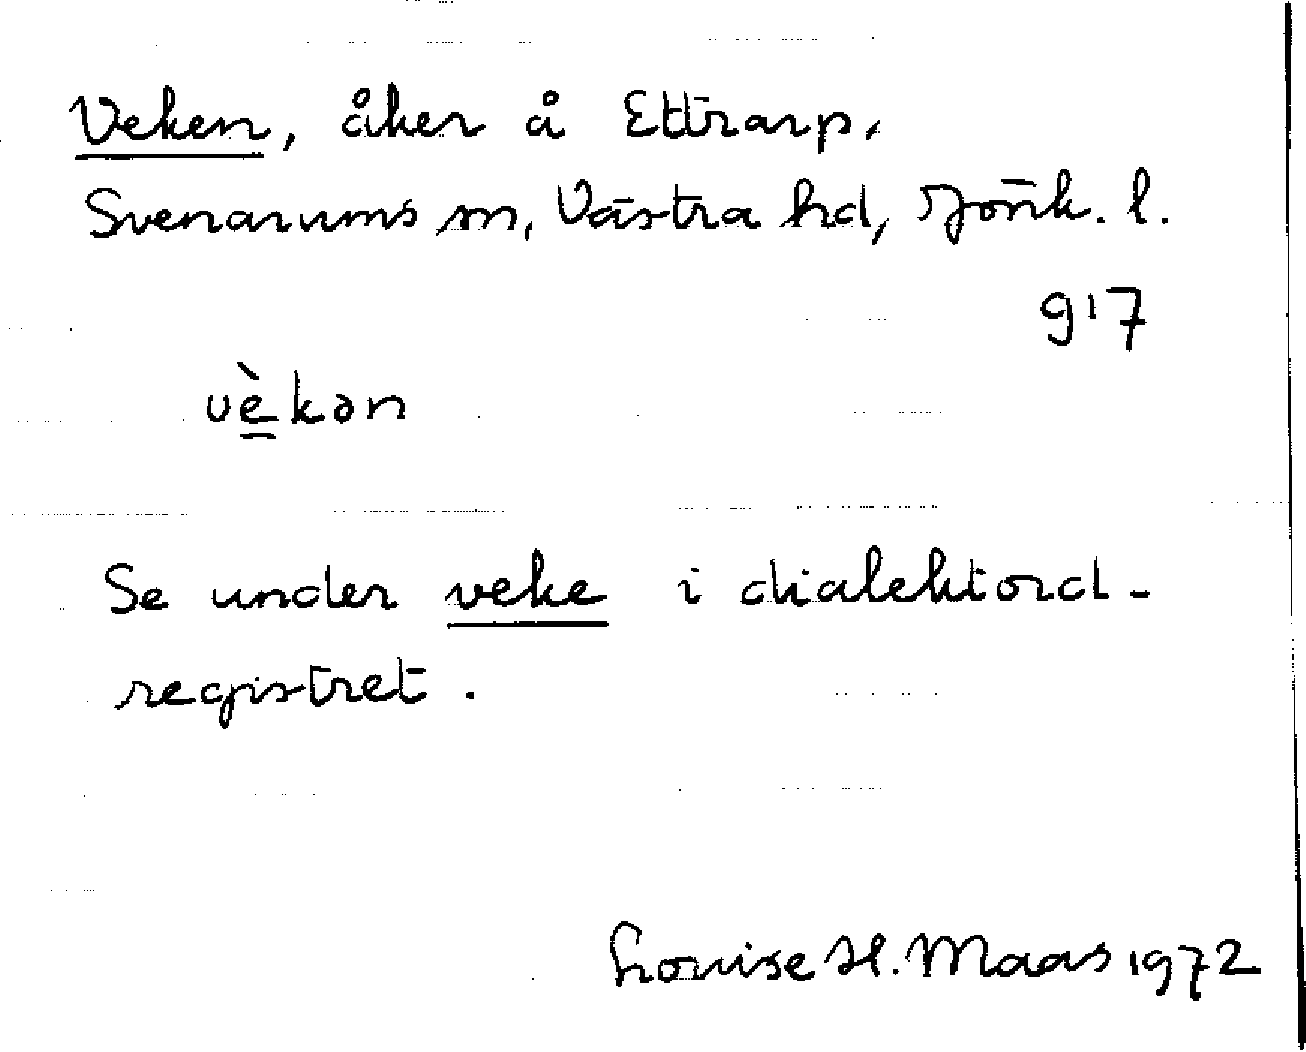 Veken, åker å Ettrarp,
Svenarums sn, Västra hd, Jönk. l.
917
vèkən
Se under veke i dialektord-
registret.
Louise H. Maas 1972